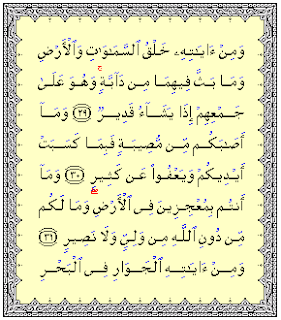 وَمِنْ ءَايَـٰتِهِۦ خَلْقُ ٱلسَّمَـٰوَٰتِ وَٱلْأَرْضِ
وَمَا بَثَّ فِيهِمَا مِن دَآبَّةٍ ۚ وَهُوَ عَلَىٰ
جَمْعِهِمْ إِذَا يَشَآءُ قَدِيرٌ ﴿٢٩﴾ وَمَآ
أَصَـٰبَكُم مِّن مُّصِيبَةٍ فَبِمَا كَسَبَتْ
أَيْدِيكُمْ وَيَعْفُوا۟ عَن كَثِيرٍ ﴿٣٠﴾ وَمَآ
أَنتُم بِمُعْجِزِينَ فِى ٱلْأَرْضِ ۖ وَمَا لَكُم
مِّن دُونِ ٱللَّهِ مِن وَلِىٍّ وَلَا نَصِيرٍ ﴿٣١﴾
وَمِنْ ءَايَـٰتِهِ ٱلْجَوَارِ فِى ٱلْبَحْرِ